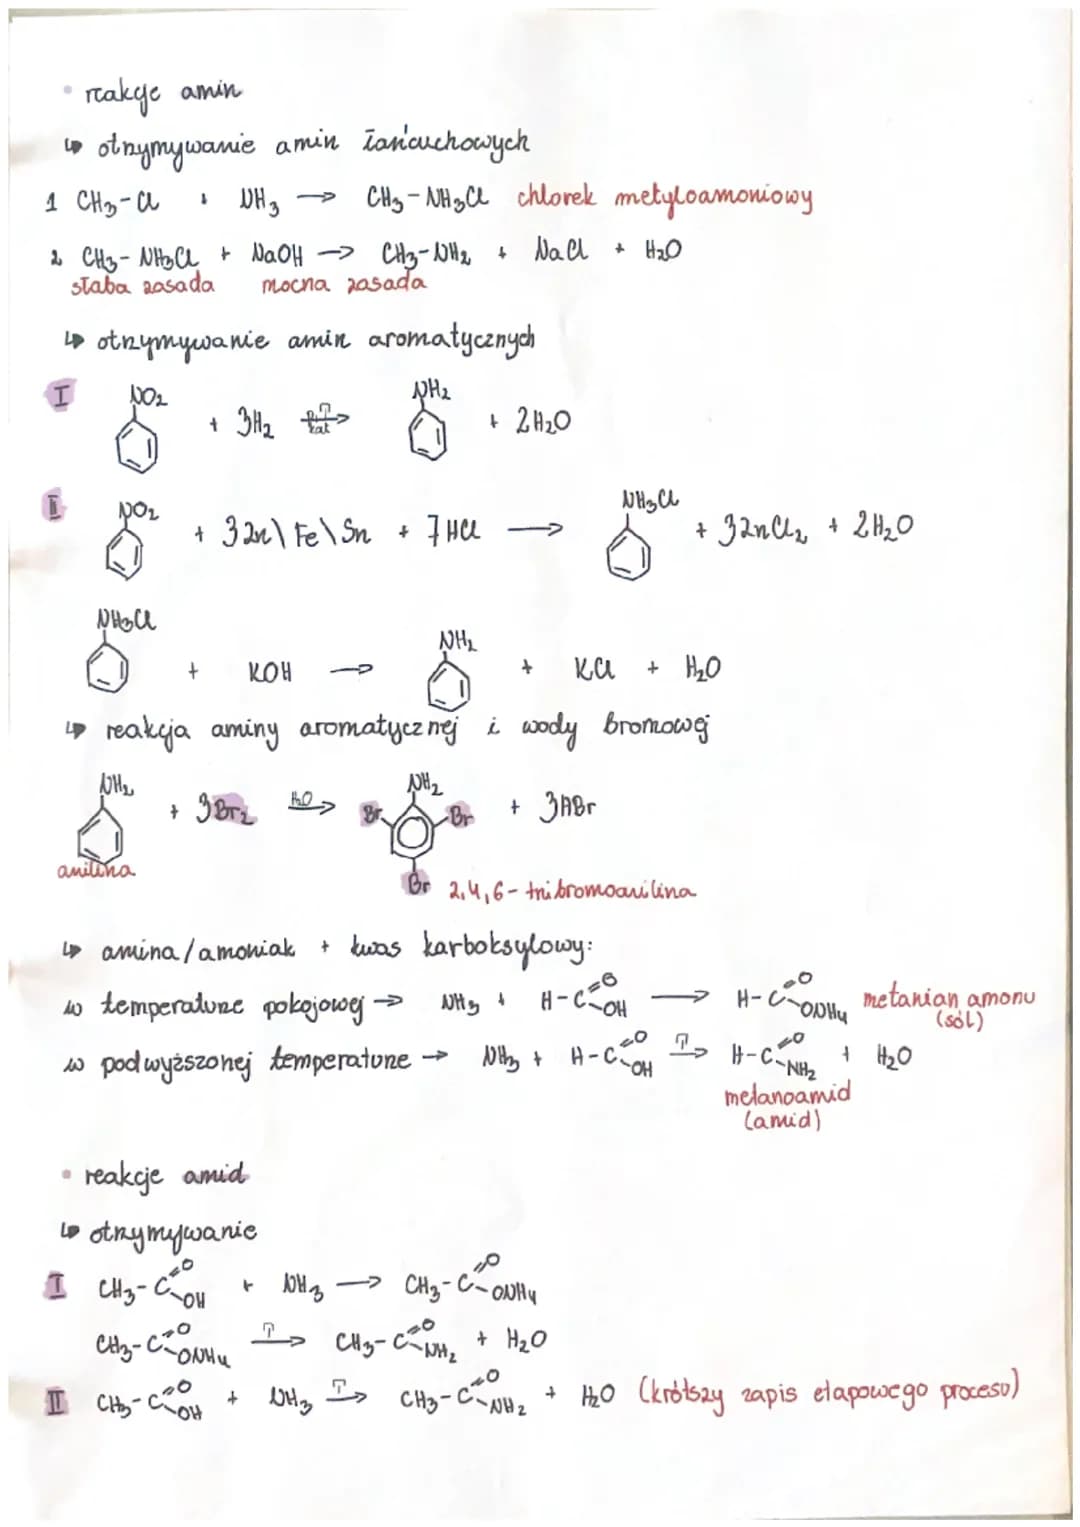 • reakcje amin
↳ otrzymywanie amin łańcuchowych
1 CH3-Cl + NH3 → CH3-NH3Cl chlorek metyloamoniowy
2 CH3-NH3Cl + NaOH → CH3-NH2 + NaCl + H2O
słaba zasada mocna zasada
↳ otrzymywanie amin aromatycznych
I NO2 + 3H2 p,T kat → NH2 + 2H2O
II NO2 + 3Zn\Fe\Sn + 7HCl → NH3Cl + 3ZnCl2 + 2H2O
NH3Cl + KOH → NH2 + KCl + H2O
↳ reakcja aminy aromatycznej i wody bromowej
NH2 + 3Br2 H2O → NH2 Br Br Br + 3HBr
anilina 2,4,6-tribromoanilina
↳ amina/amoniak + kwas karboksylowy:
w temperaturze pokojowej → NH3 + H-C=O-OH → H-C=O-ONH4 metanian amonu
(sól)
w podwyższonej temperaturze → NH3 + H-C=O-OH T → H-C=O-NH2 + H2O
metanoamid
(amid)
• reakcje amid
↳ otrzymywanie
I CH3-C=O-OH + NH3 → CH3-C=O-ONH4
CH3-C=O-ONH4 T → CH3-C=O-NH2 + H2O
II CH3-C=O-OH + NH3 T → CH3-C=O-NH2 + H2O (krótszy zapis etapowego procesu)